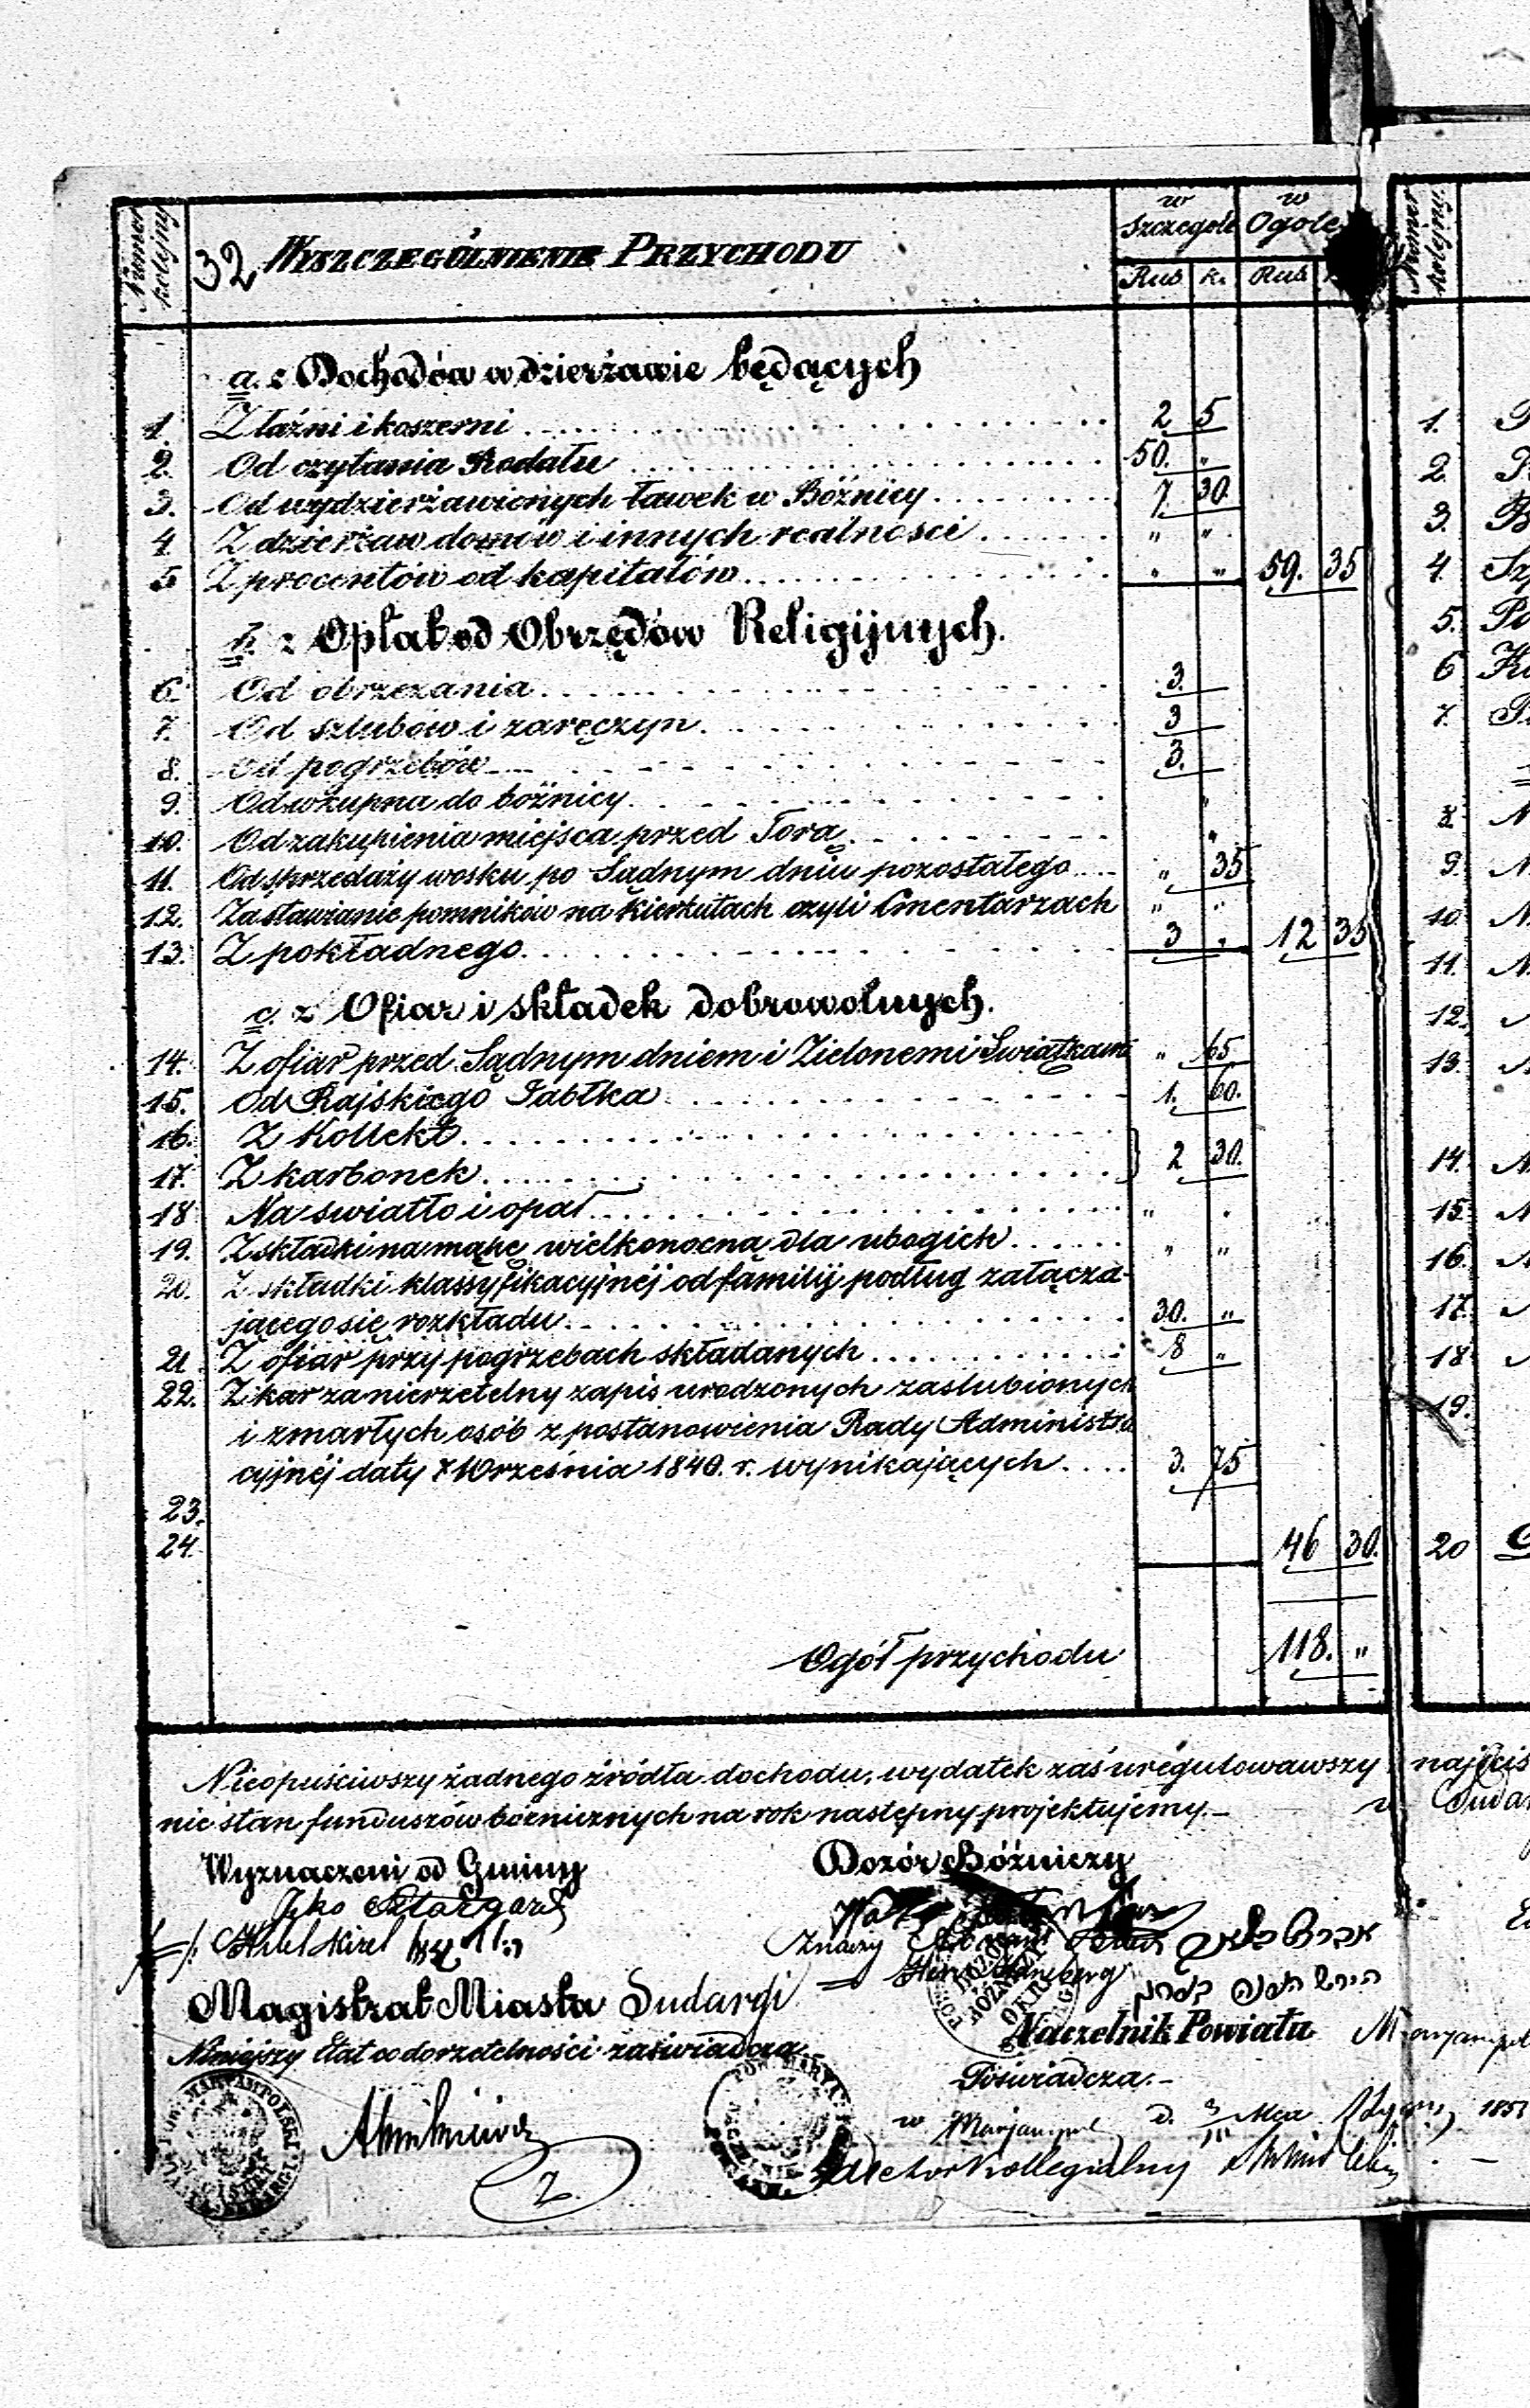 Numer kolejny
32 WYSZCZEGÓLNIENIE PRZYCHODU
w Szczegole
w Ogole
Rus k. Rus
Numer kolejny.
a. z Dochodów w dzierżawie będących
1. Z łaźni i koszerni 2 5
2. Od czytania Rodału 50. "
3. Od wydzierżawionych ławek w Bóźnicy 7. 30.
4. Z dzierżaw domów i innych realności " "
5 Z procentów od kapitałów " " 59. 35
b. z Opłat od Obrzędów Religijnych.
6. Od obrzezania 3.
7. Od szlubów i zaręczyn 3
8. Od pogrzebów 3.
9. Od wkupna do bóźnicy "
10. Od zakupienia miejsca przed Torą "
11. Od sprzedaży wosku po Sądnym dniu pozostałego " 35
12. Za stawianie pomników na kierkutach czyli Cmentarzach " "
13. Z pokładnego 3 " 12 35
c. z Ofiar i składek dobrowolnych.
14. Z ofiar przed Sądnym dniem i Zielonemi Swiątkami " 65
15. Od Rajskiego Jabłka 1. 60.
16. Z Kollekt
17. Z karbonek 2 30.
18 Na swiatło i opał " "
19. Z składki na mąkę wielkonocną dla ubogich " "
20. Z składki klassyfikacyjnéj od familij podług załącza-
jącego się rozkładu 30. "
21. Z ofiar przy pogrzebach składanych 8 "
22. Z kar za nierzetelny zapis urodzonych zaslubionych
i zmarłych osób z postanowienia Rady Administra
cyjnéj daty 7 Września 1840. r. wynikających 3. 75
23.
24. 46 30.
Ogół przychodu 118. "
1.
2.
3.
4.
5.
6
7.
9.
10.
11.
12.
13.
14.
15.
16.
17.
18
19.
20
Nieopuściwszy żadnego źródła dochodu, wydatek zaś uregulowawszy najściś
nie stan funduszów bóżnicznych na rok następny projektujemy.
Wyznaczeni od Gminy
Dozór Bóźniczy
Znaczy
Magistrat Miasta Sudargi
Niniejszy Etat co do rzetelności zaświadcza
Naczelnik Powiatu
Poświadcza.
w Marjampol d.
Kollegialny